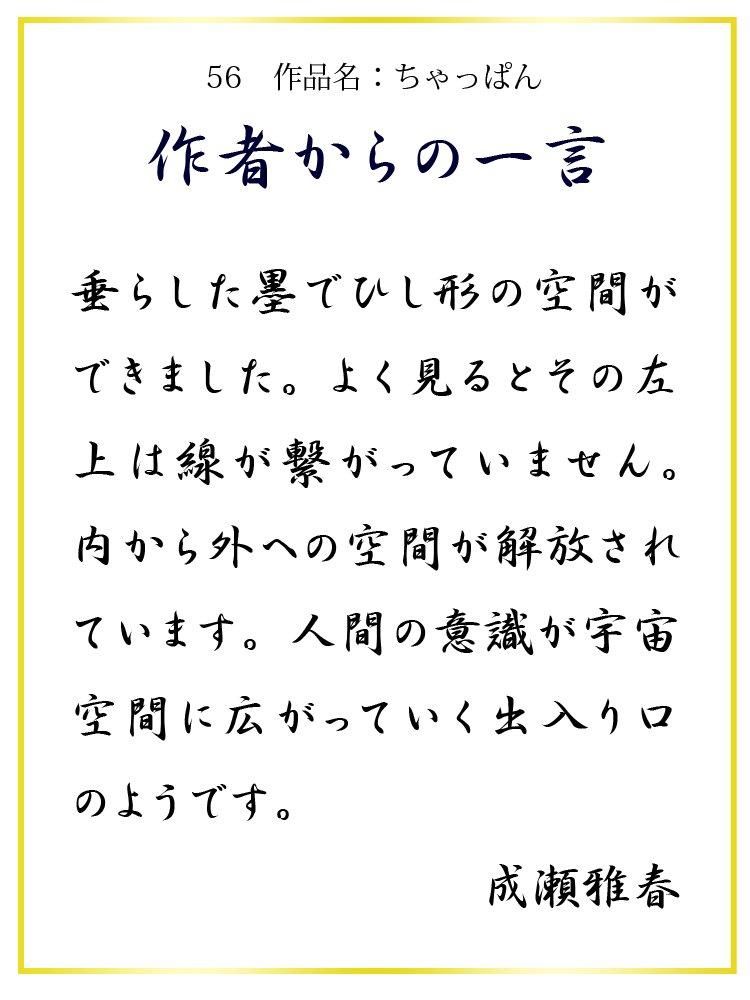 56　作品名：ちゃっぱん
作者からの一言
垂らした墨でひし形の空間が
できました。よく見るとその左
上は線が繋がっていません。
内から外への空間が解放され
ています。人間の意識が宇宙
空間に広がっていく出入り口
のようです。
成瀬雅春